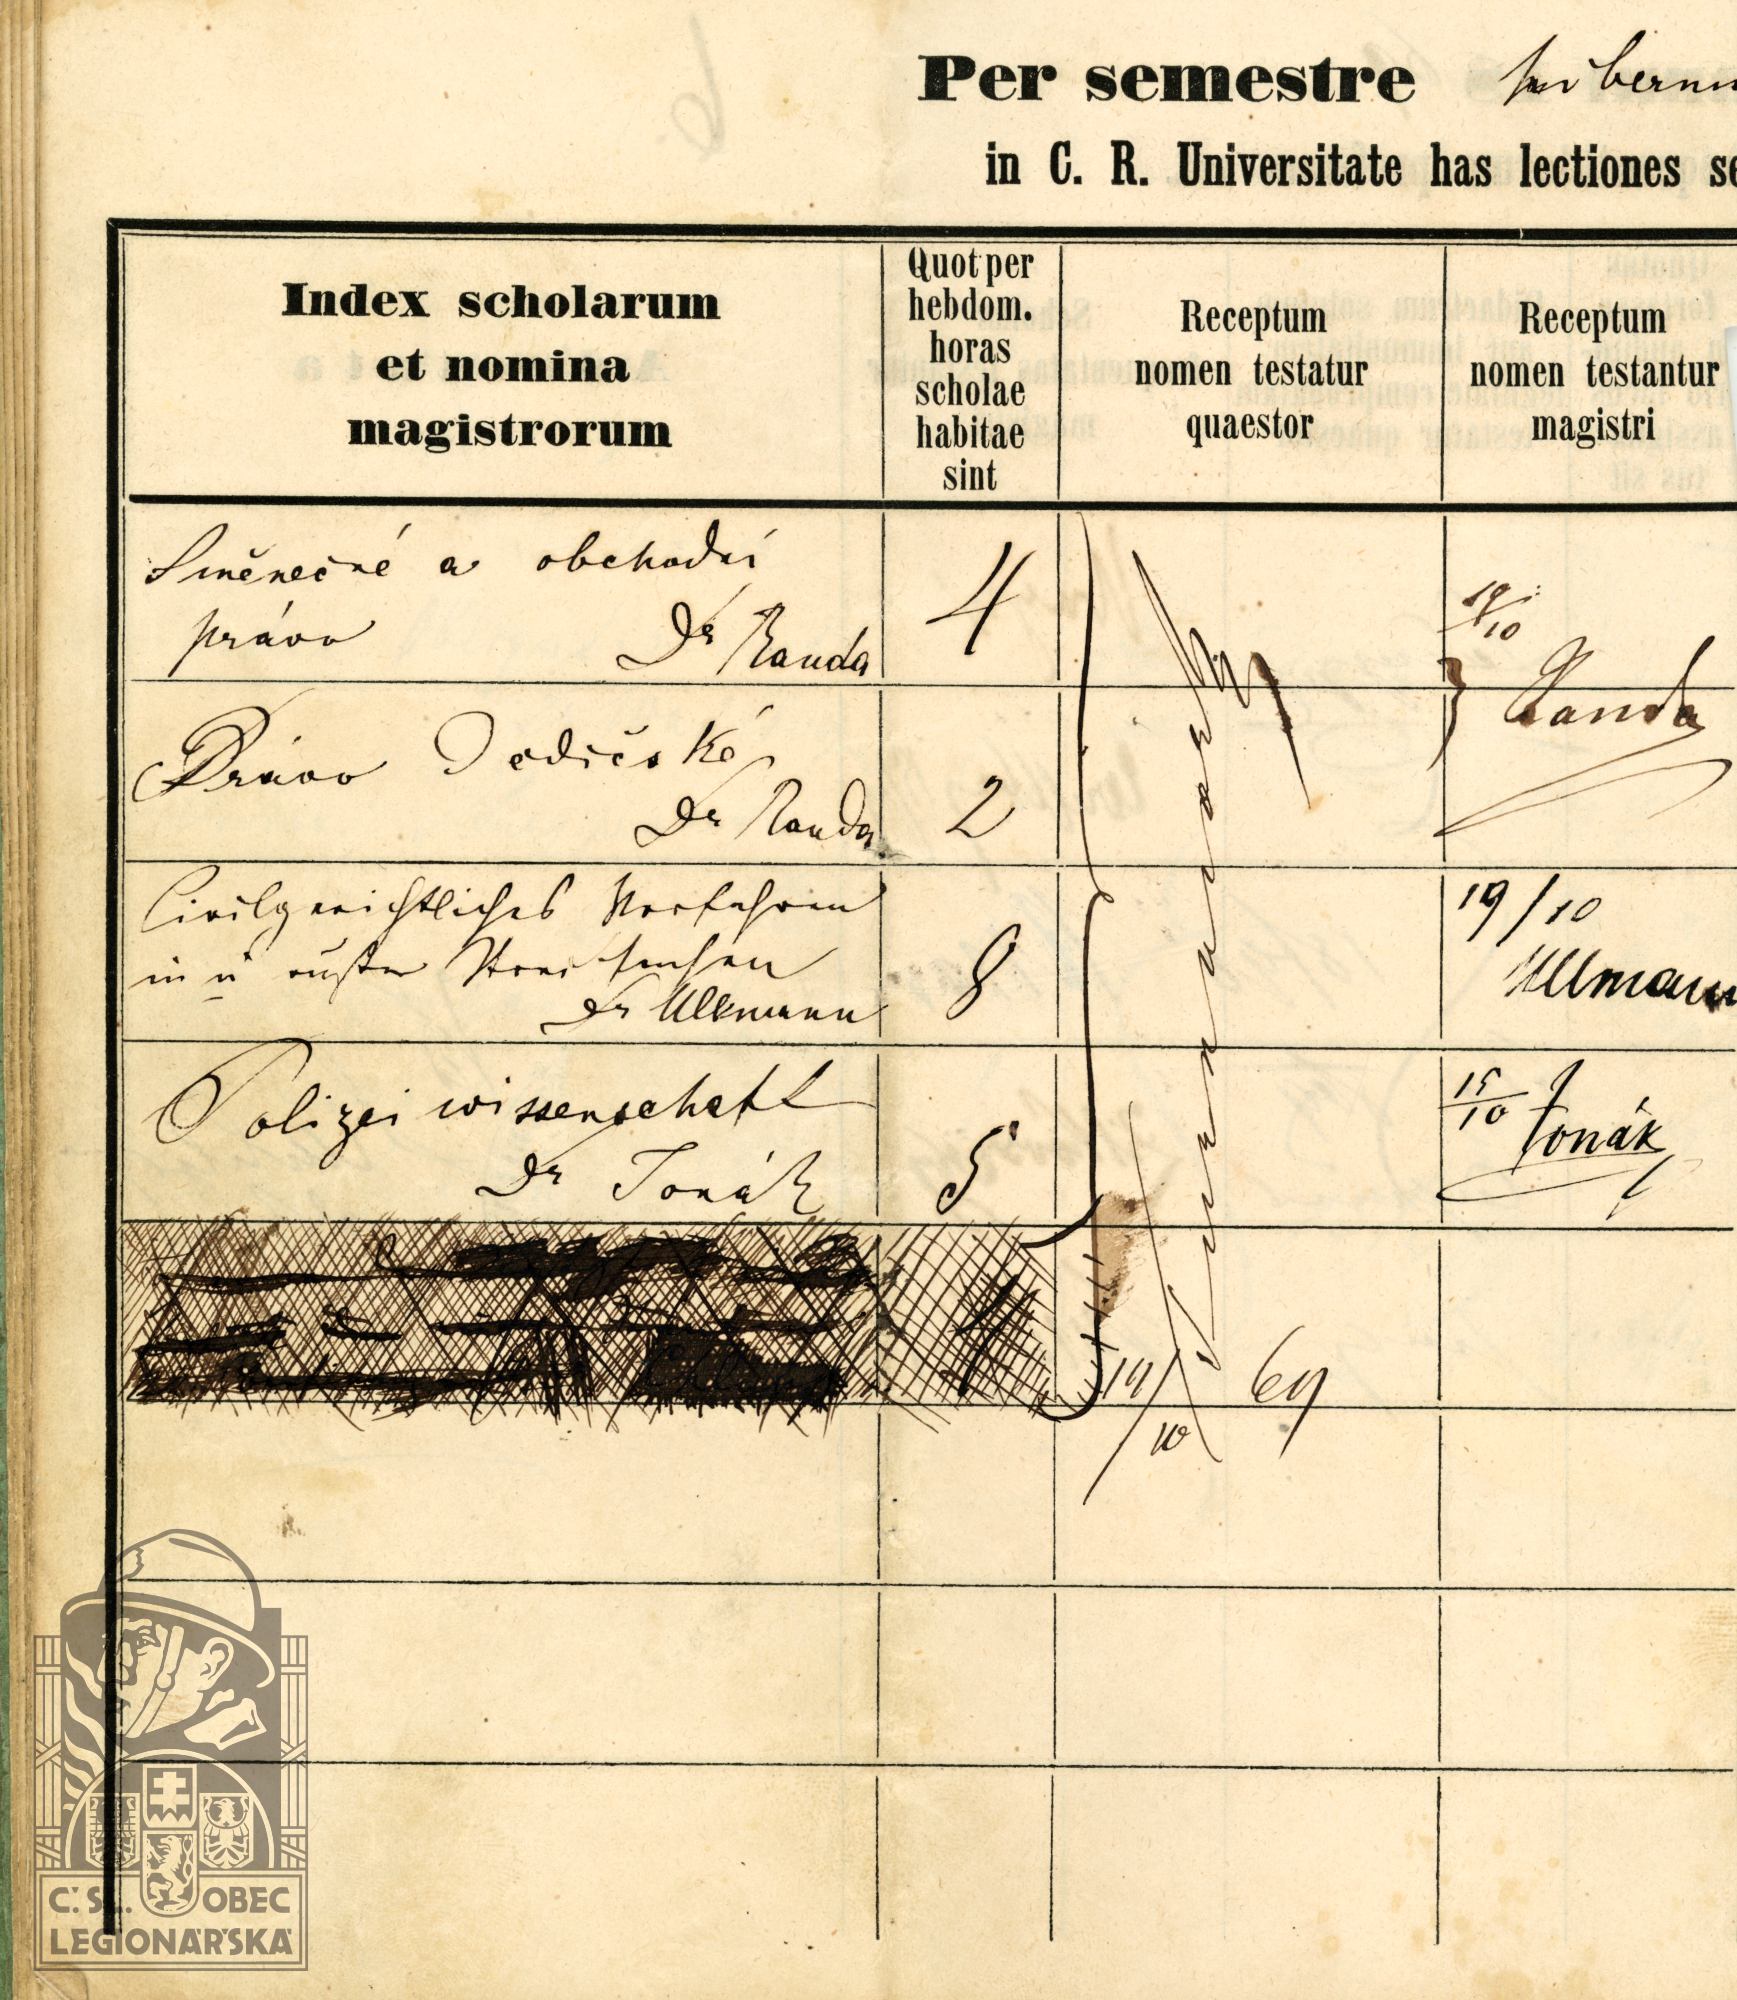 Per semestre hibernu
in C. R. Universitate has lectiones se
Index scholarum
et nomina
magistrorum
Quot per
hebdom.
horas
scholae
habitae
sint
Receptum
nomen testatur
quaestor
Receptum
nomen testantur
magistri
Směnečné a obchodní
právo Dr Randa
4
19/10
Randa
Právo Dědičské
Dr Randa
2
Civilgerichtliches Verfahren
in u außer Streitsachen
Dr Ullmann
8
19/10
Ullmann
Polizeiwissenschaft
Dr Tonák
5
15/10
Tonák
19/10 69
Č. SL. OBEC
LEGIONÁŘSKÁ